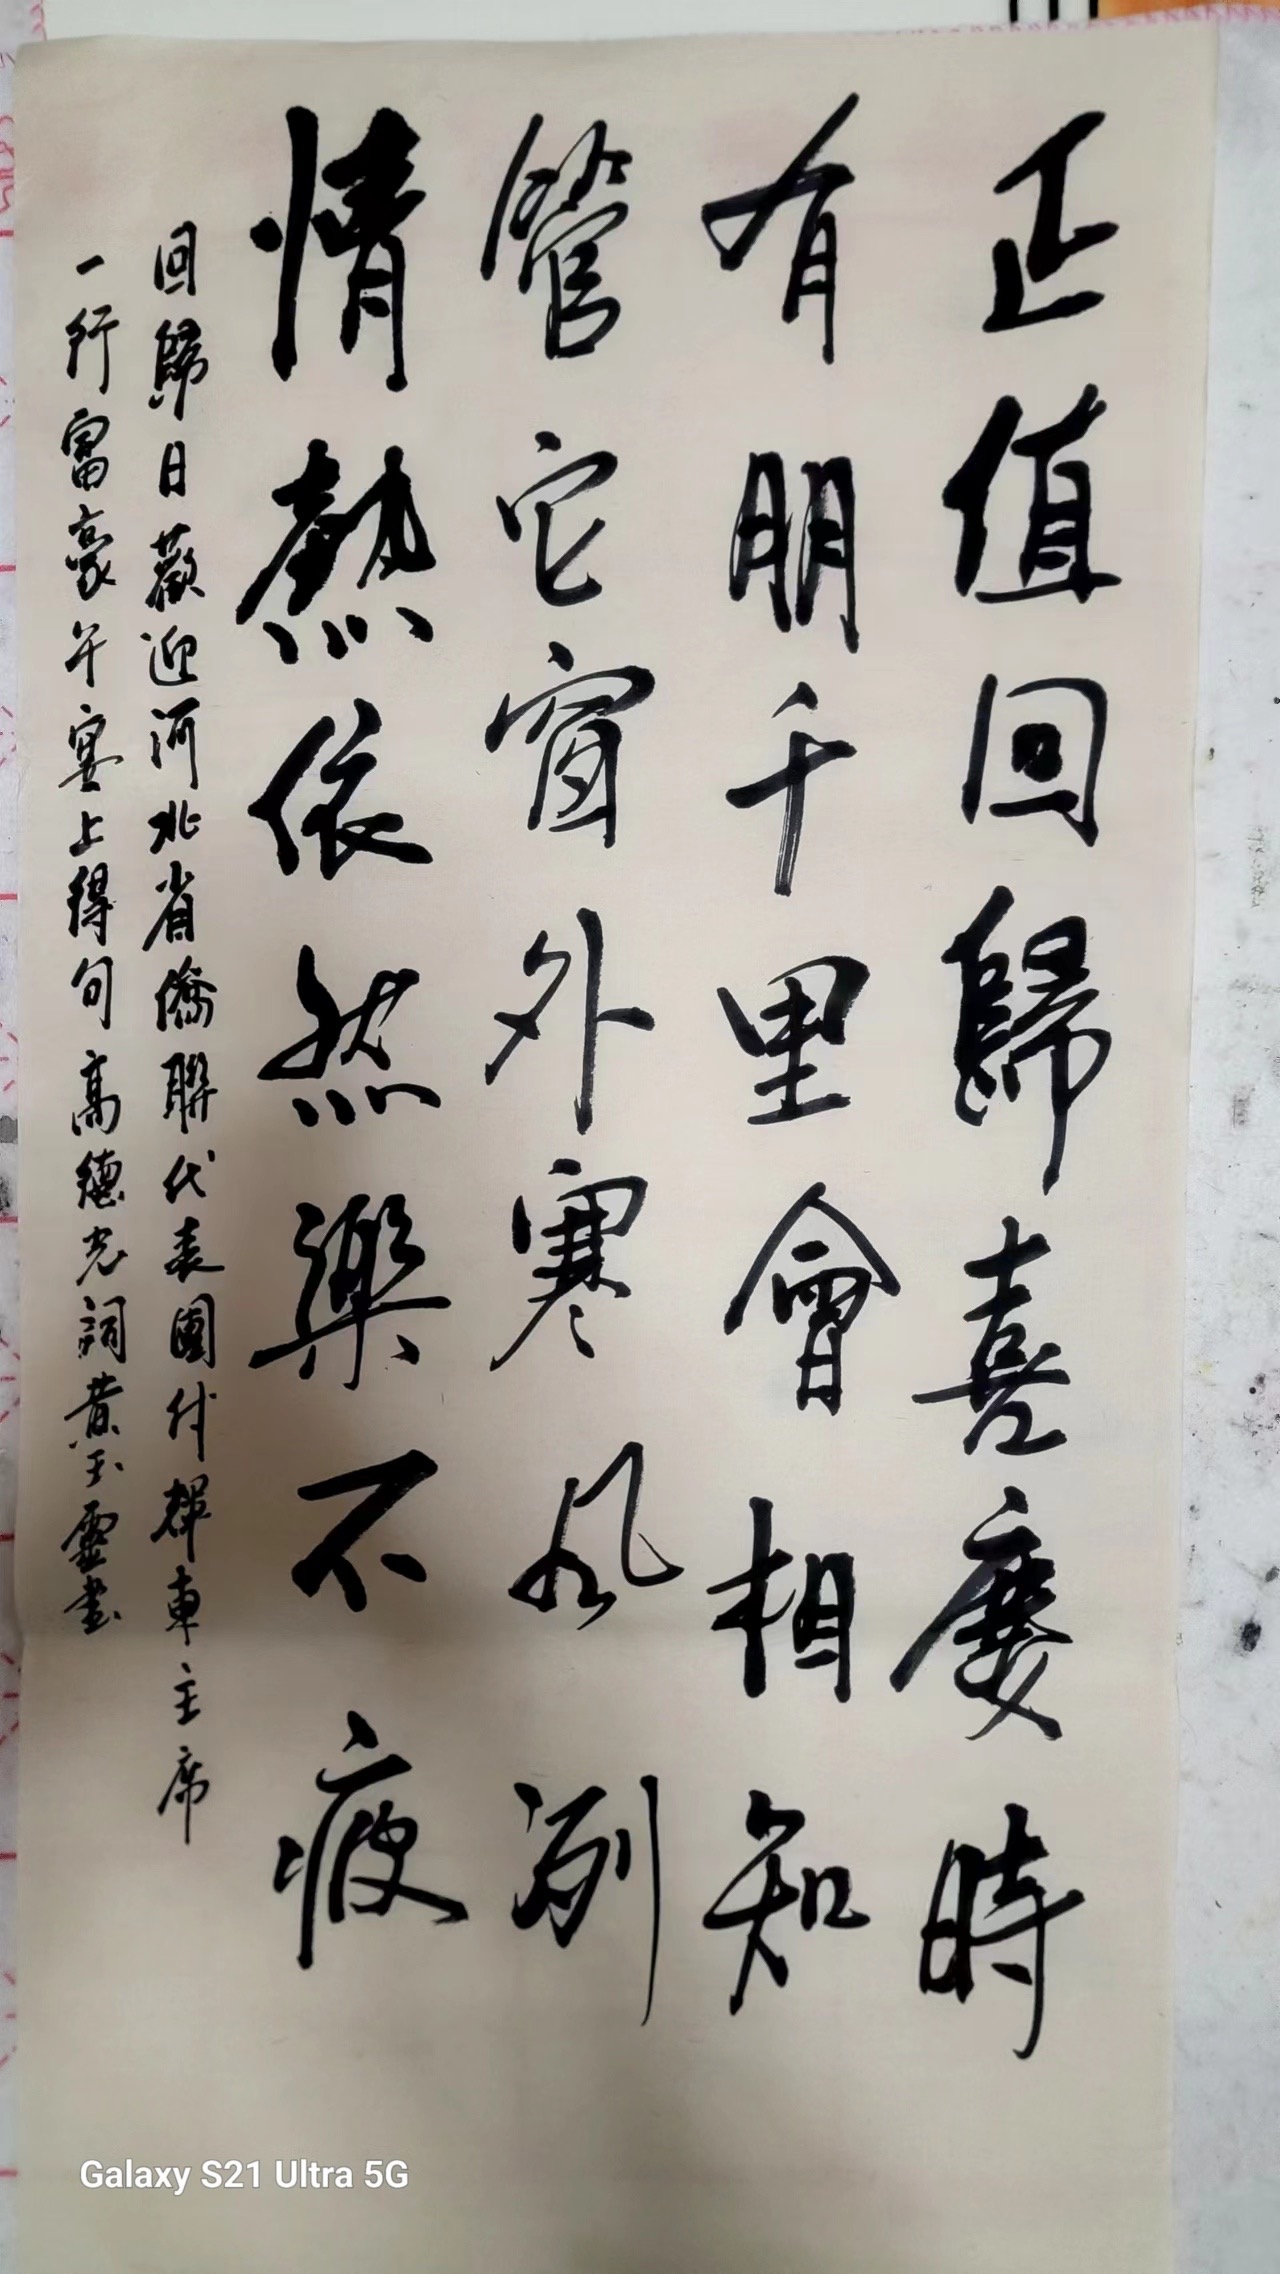 正值回歸喜慶時
有朋千里會相知
管它窗外寒風冽
情熱依然樂不疲
回歸日蘞迎河北省僑聯代表團付群東主席
一行富豪午宴上得句高德光詞黄玉靈書
Galaxy S21 Ultra 5G